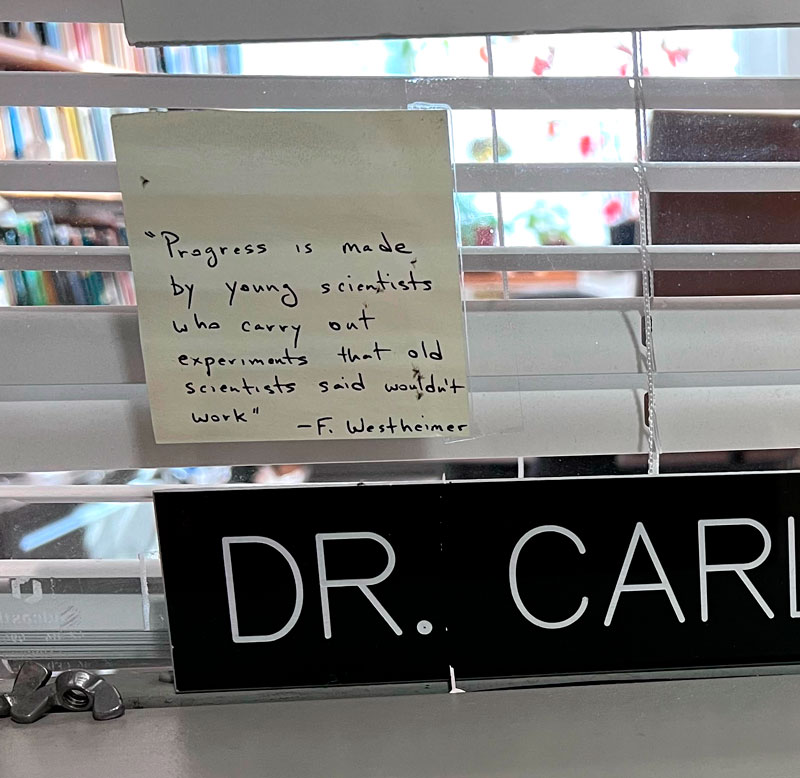 "Progress is made
by young scientists
who carry out
experiments that old
scientists said wouldn't
work"
—F. Westheimer
DR. CARL